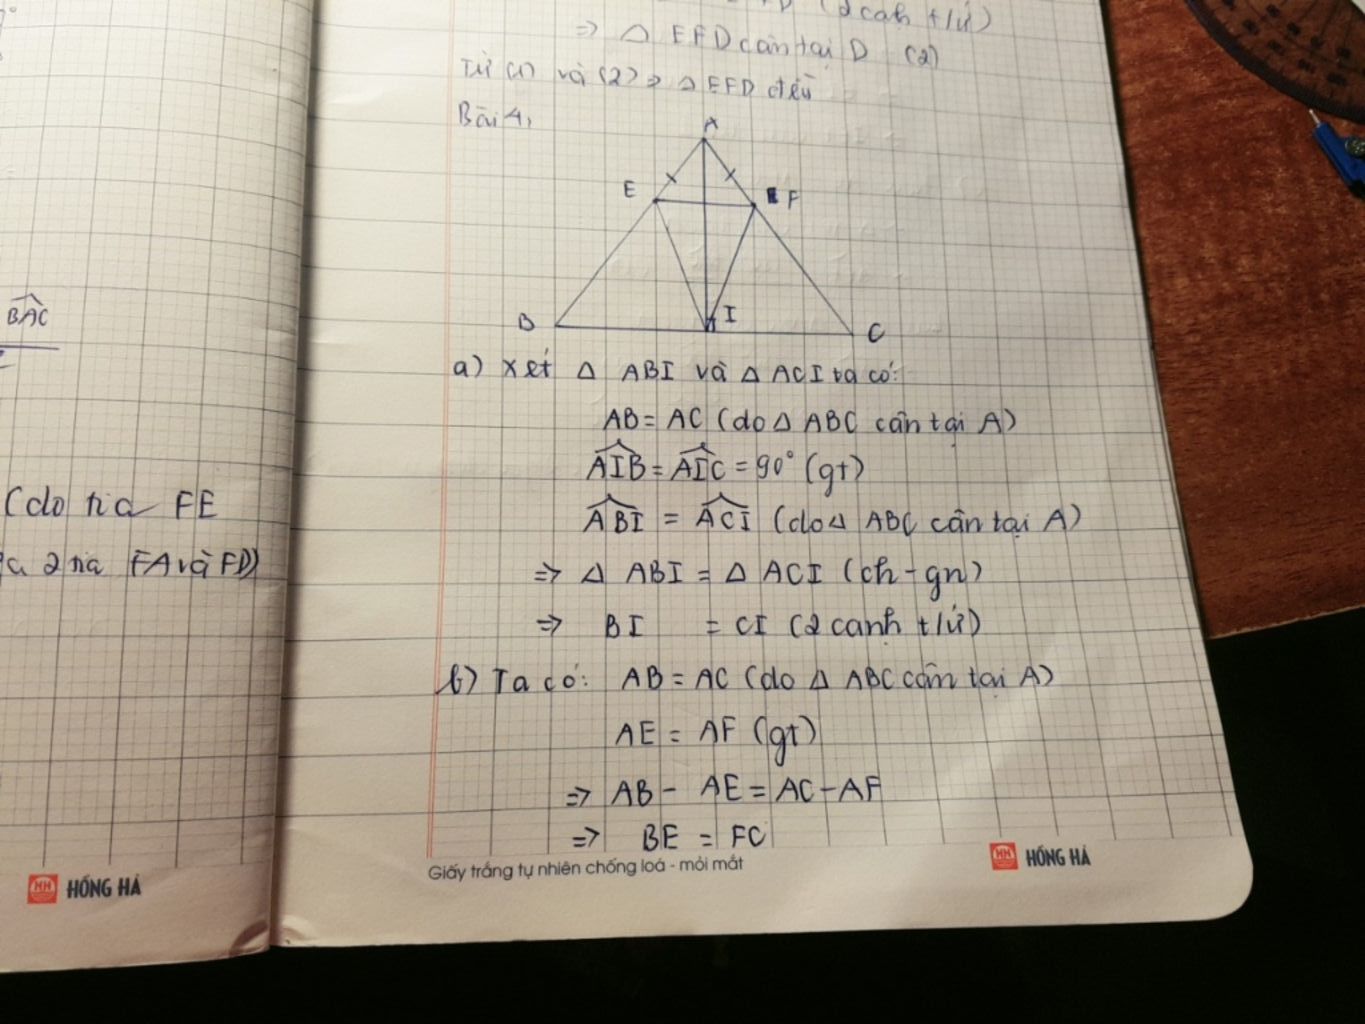 BAC
(do tia FE
2 tia FA và FD)
HỒNG HÀ
(2 cạnh t/ứ)
=> Δ EFD cân tại D (2)
Từ (1) và (2) => Δ EFD đều
Bài 4,
A
E
F
B
I
C
a) Xét Δ ABI và Δ ACI ta có:
AB = AC (do Δ ABC cân tại A)
AIB = AIC = 90° (gt)
ABI = ACI (do Δ ABC cân tại A)
=> Δ ABI = Δ ACI (ch-gn)
=> BI = CI (2 cạnh t/ứ)
b) Ta có: AB = AC (do Δ ABC cân tại A)
AE = AF (gt)
=> AB - AE = AC - AF
=> BE = FC
Giấy trắng tự nhiên chống loá - mỏi mắt
HỒNG HÀ